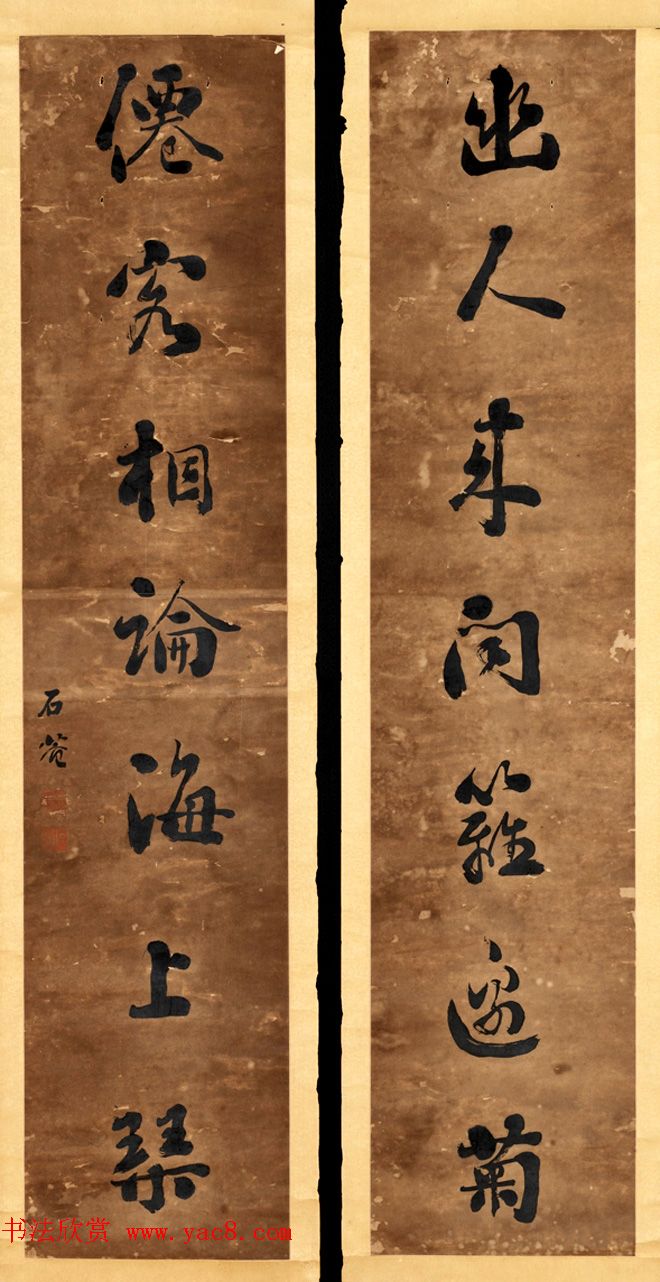 幽人来问籬邊菊
僊客相論海上琴
石菴
书法欣赏 www.yac8.com